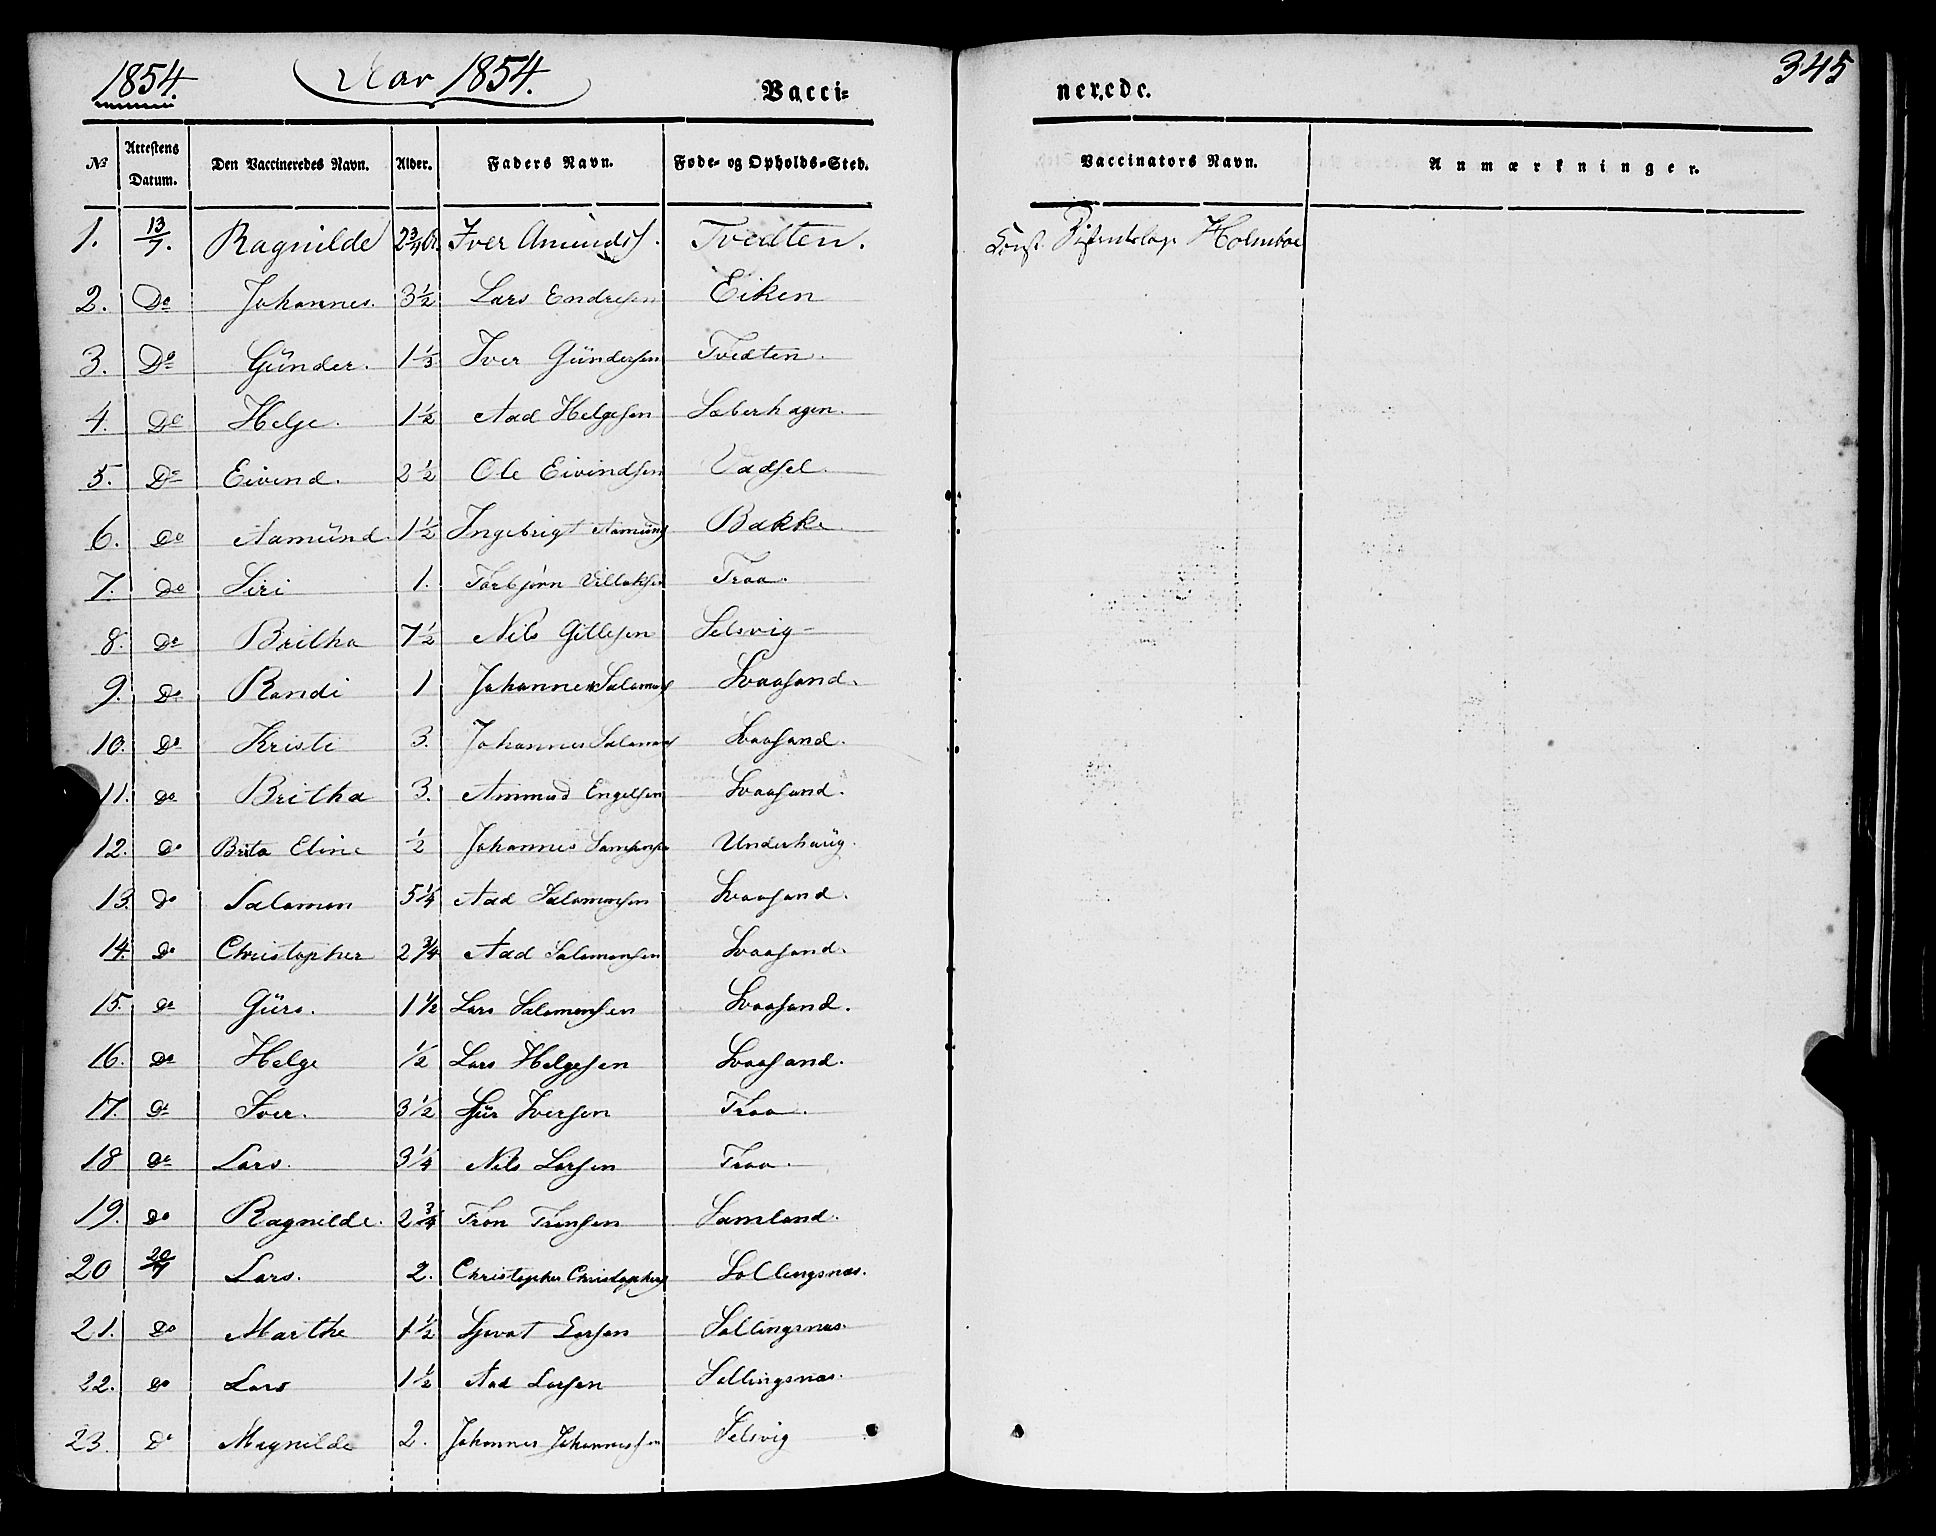 1854. Aar 1854. Vacci= nerede. 345
№ Attestens Datum. Den Vaccineredes Navn. Alder. Faders Navn. Føde- og Opholds-Sted. Vaccinators Navn. Anmærkninger.
1. 13/7. Ragnilde 2 3/4 Iver Amunds. Tvedten. Const. Holmboe
2. Do Johannes. 3 1/2 Lars Endresen Eiken
3. Do Günder. 1 1/3 Iver Gündersen Tvedten.
4. Do Helge. 1 1/2 Aad Helgesen Sæberhagen.
5. Do Eivind. 2 1/2 Ole Eivindsen Vadsel.
6. Do Aamünd. 1 1/2 Ingebrigt Aamünds Bakke
7. Do Siri 1. Torbjørn Villaksen Traa.
8. Do Britha 7 1/2 Nils Gillesen Selsvig
9. Do Randi 1 Johannes Salamons Svaasand.
10. Do Kristi 3. Johannes Salamons Svaasand.
11. Do Britha 3. Ammund Engelsen Svaasand.
12. Do Brita Eline 1/2 Johannes Samsonsen Underhaüg.
13. Do Salamon 5 1/4 Aad Salamonsen Svaasand.
14. Do Christopher 2 3/4 Aad Salamonsen Svaasand.
15. Do Güro. 1 1/2 Lars Salamonsen Svaasand.
16. Do Helge 1/2 Lars Helgesen Svaasand.
17. Do Iver. 3 1/2 Sjur Iversen Traa.
18 Do Lars. 3 1/4 Nils Larsen Traa.
19. Do Ragnilde. 2 3/4 Tron Tronsen Samland.
20 20/7 Lars. 2. Christopher Christophers Sollingsnæs.
21. Do Marthe 1 1/2 Sjovat Larsen Sollingsnæs.
22. Do Lars 1 1/2 Aad Larsen Sellingsnæs.
23. Do Magnilde 2. Johannes Johannessen Selsvig